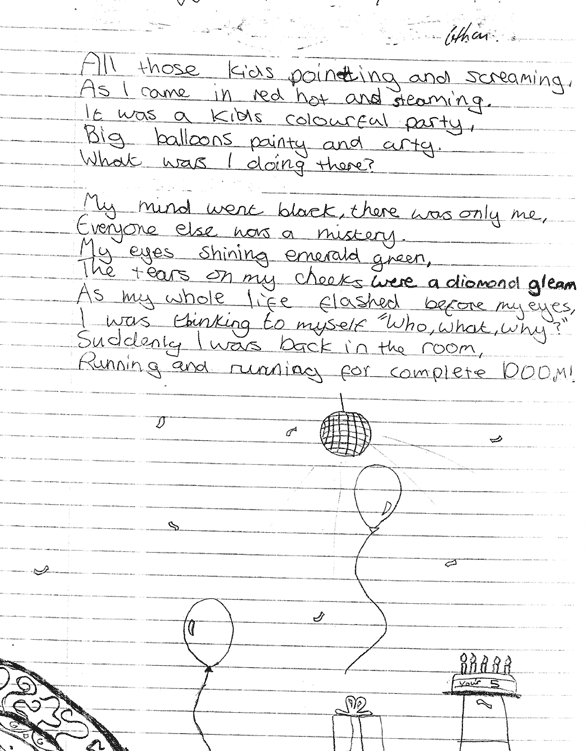 Ethan.
All those kids pointing and screaming,
As I came in red hot and steaming.
It was a kids colourful party,
Big balloons painty and arty.
What was I doing there?
My mind went black, there was only me,
Everyone else was a mistery.
My eyes shining emerald green,
The tears on my cheeks were a diomond gleam
As my whole life flashed before my eyes,
I was thinking to myself "Who, what, why?"
Suddenly I was back in the room,
Running and running for complete DOOM!
your 5